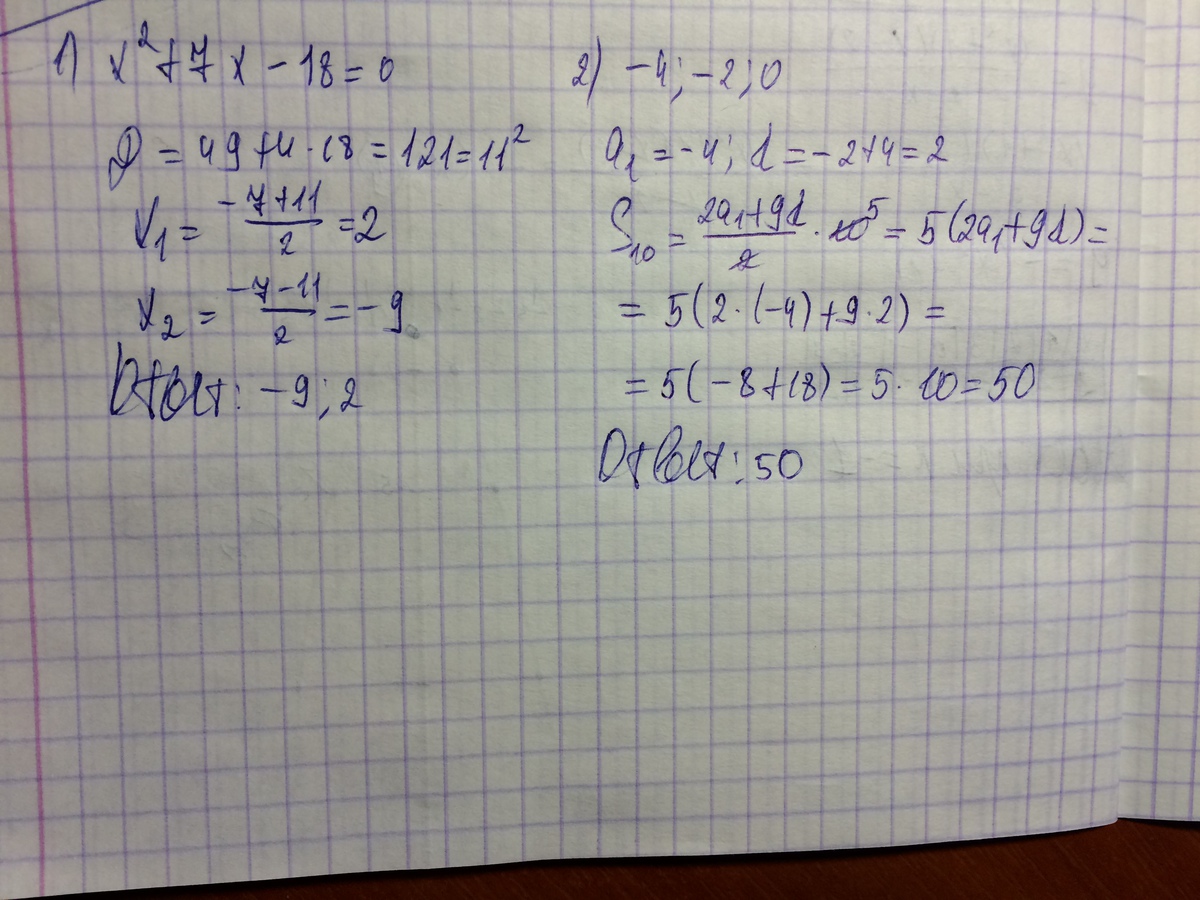 1) x²+7x-18=0
D=49+4·18=121=11²
x₁=(-7+11)/2=2
x₂=(-7-11)/2=-9
Ответ: -9; 2
2) -4; -2; 0
a₁=-4; d=-2+4=2
S₁₀=(2a₁+9d)/2·10 5=5(2a₁+9d)=
=5(2·(-4)+9·2)=
=5(-8+18)=5·10=50
Ответ: 50